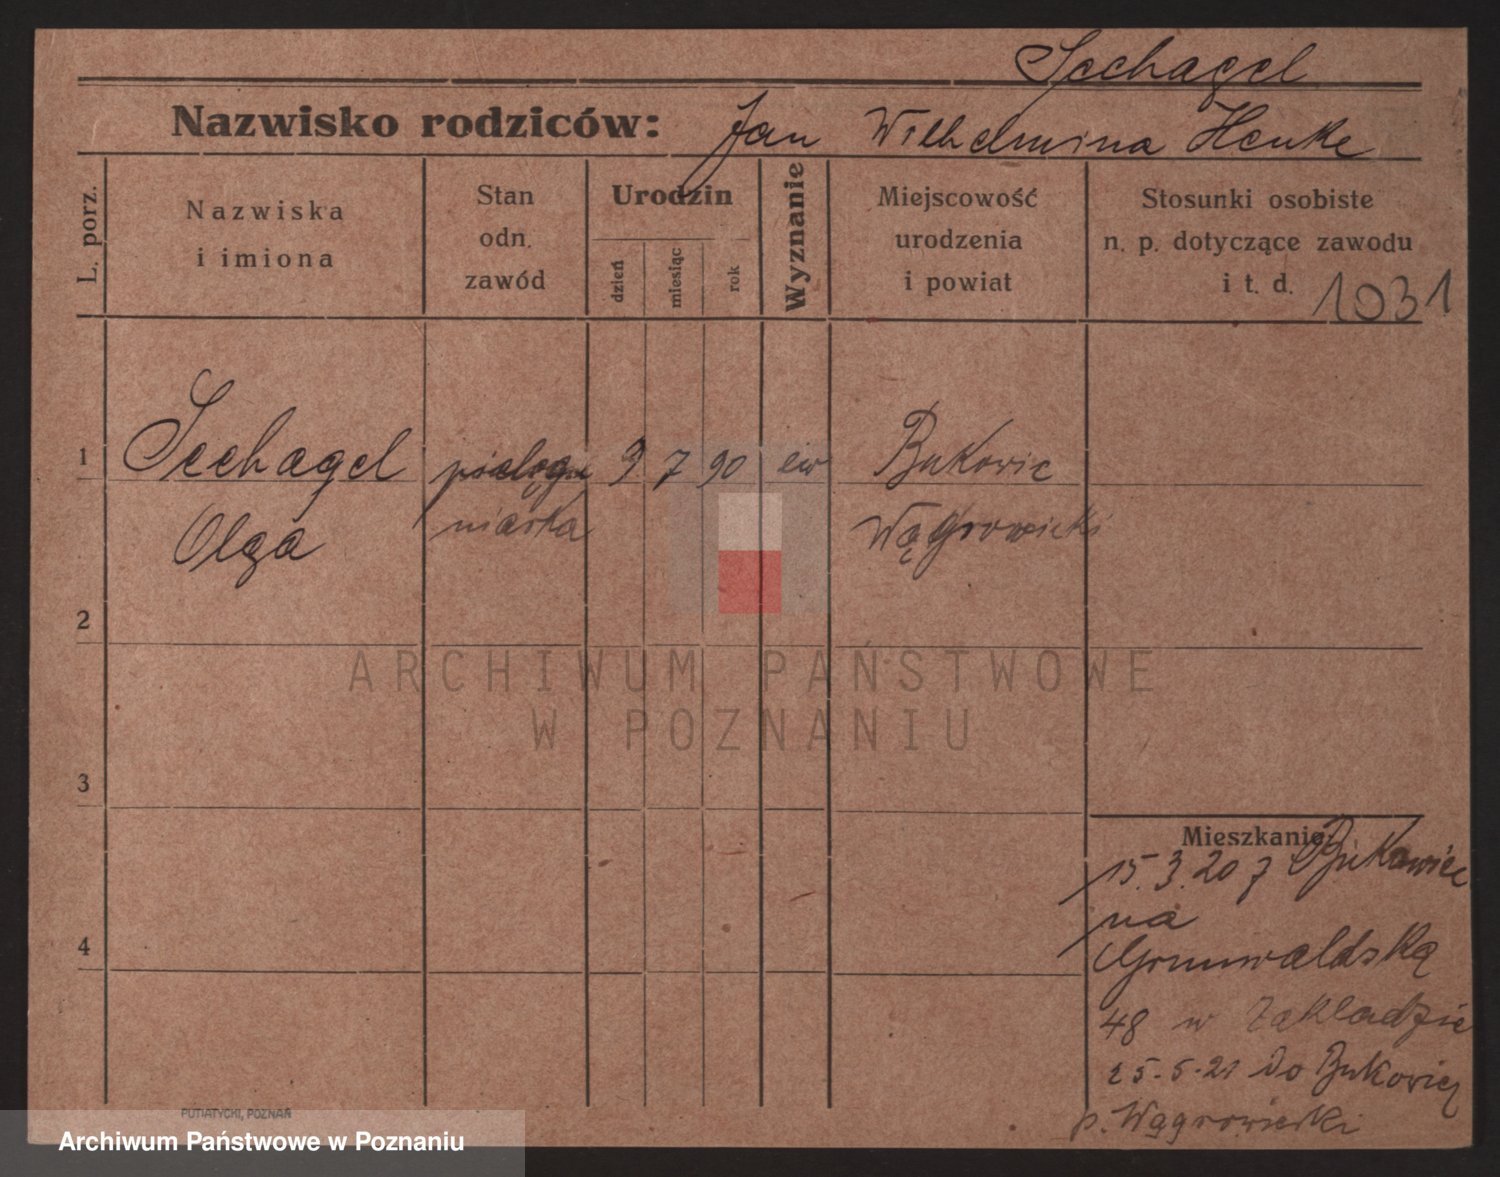 Sechagel
Nazwisko rodziców: Jan Wilhelmina Henke
L. porz.
Nazwiska
i imiona
Stan
odn.
zawód
Urodzin
dzień
miesiąc
rok
Wyznanie
Miejscowość
urodzenia
i powiat
Stosunki osobiste
n. p. dotyczące zawodu
i t. d. 1031
1 Sechagel pielęgn 9 7 90 ew Bukowic
Olga niarka Wągrowiecki
2
ARCHIWUM PAŃSTWOWE
W POZNANIU
3
Mieszkanie:
15.3.20 z Bukowiec
na
4
Grunwaldską
48 w Zakladzie
25.5.21 do Bukowiec
p. Wągrowiecki
PUTIATYCKI, POZNAŃ
Archiwum Państwowe w Poznaniu